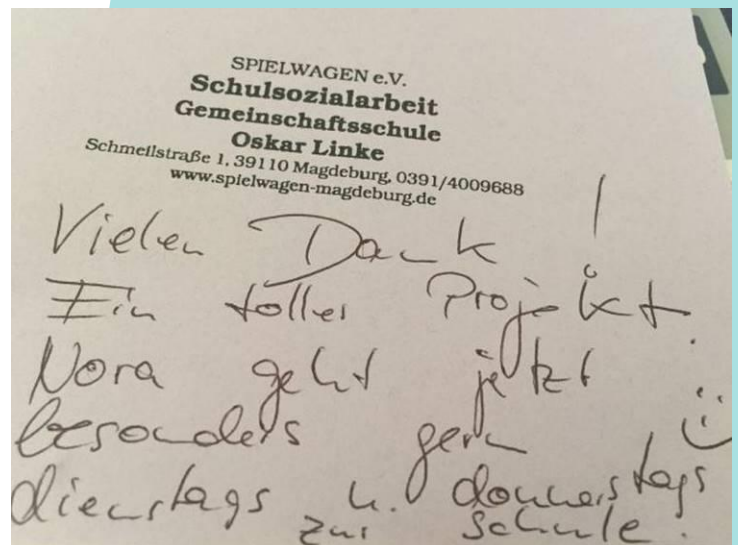 SPIELWAGEN e.V.
Schulsozialarbeit
Gemeinschaftsschule
Oskar Linke
Schmeilstraße 1, 39110 Magdeburg, 0391/4009688
www.spielwagen-magdeburg.de
Vielen Dank !
Ein toller Projekt.
Nora geht jetzt
besonders gern :)
dienstags u. donnerstags
zur Schule.